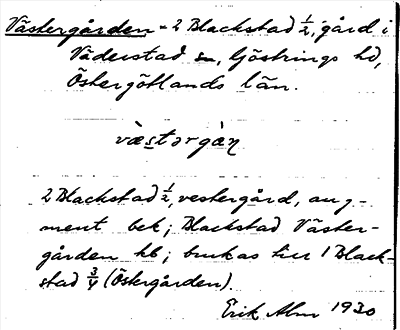 Västergården = 2 Blackstad ½, gård i
Väderstad sn, Göstrings hd,
Östergötlands län.
væ̀stərgàṇ
2 Blackstad ½, vestergård, aug-
ment bek; Blackstad Väster-
gården kb; brukas till 1 Black-
stad ¾ (Östergården).
Erik Alm 1930